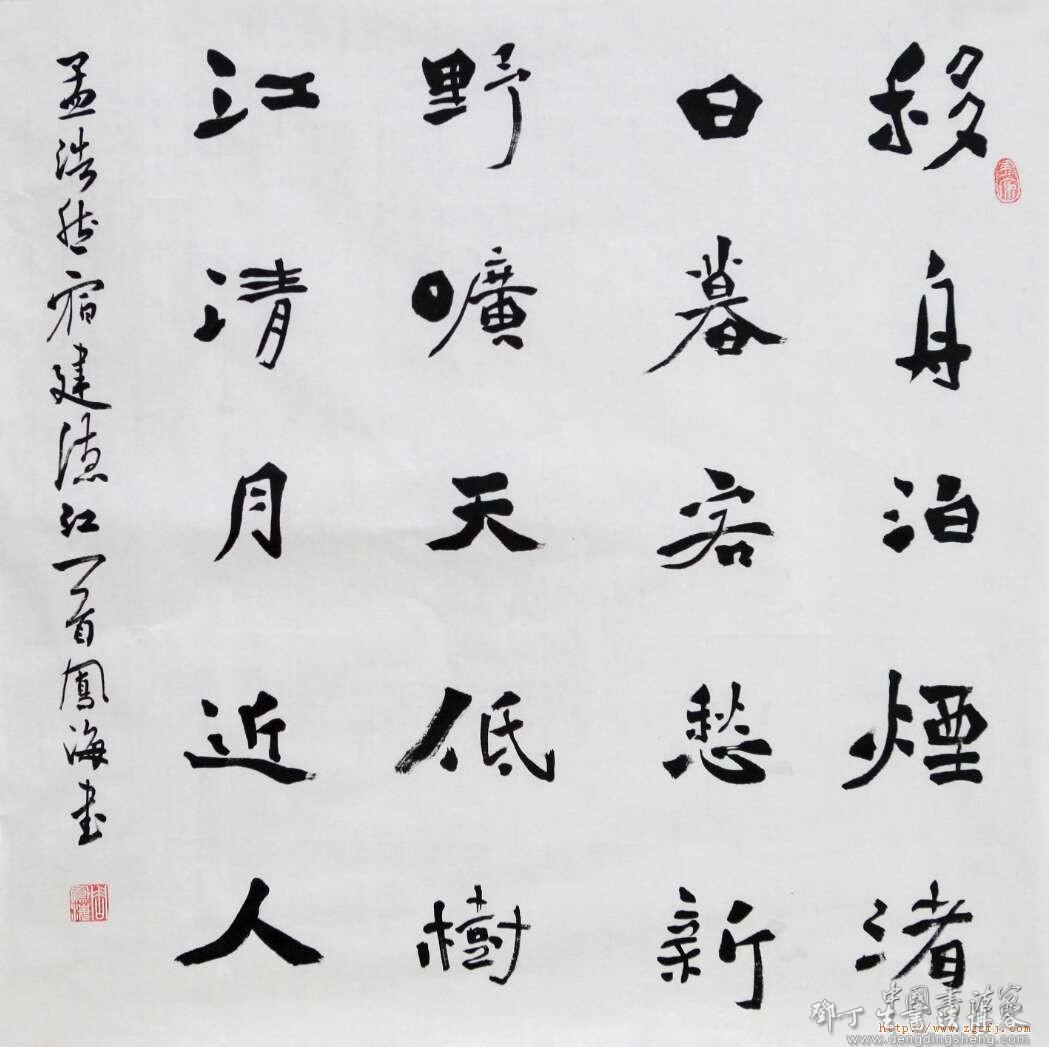 移身泊煙渚
日暮客愁新
野曠天低樹
江清月近人
孟浩然宿建德江一首鳳海书
鄧丁生
中國書法家
http://www.zgsfj.com
www.dengdingsheng.com